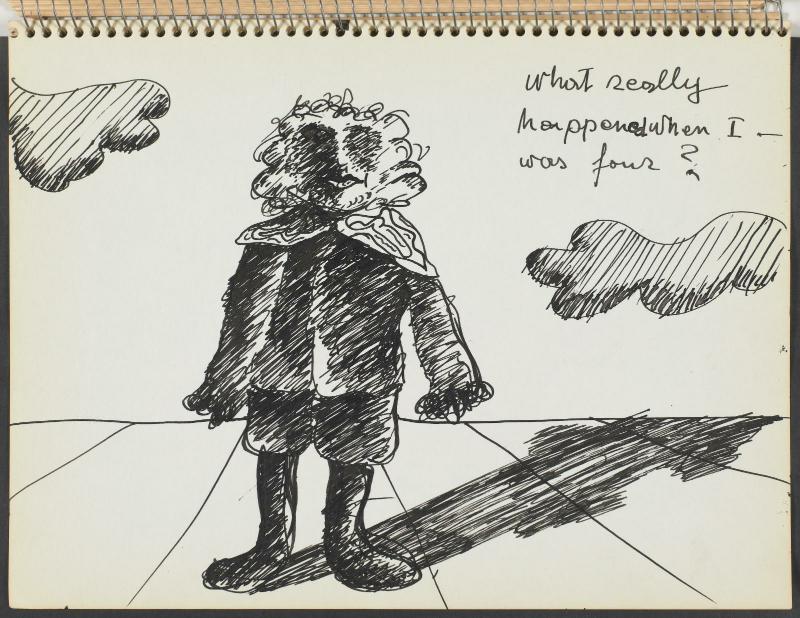 what really
happened when I —
was four ?